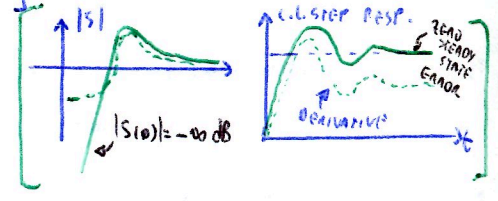 |S|
|S(0)| = -∞ dB
C.L. STEP RESP.
ZERO
STEADY
STATE
ERROR
DERIVATIVE
t